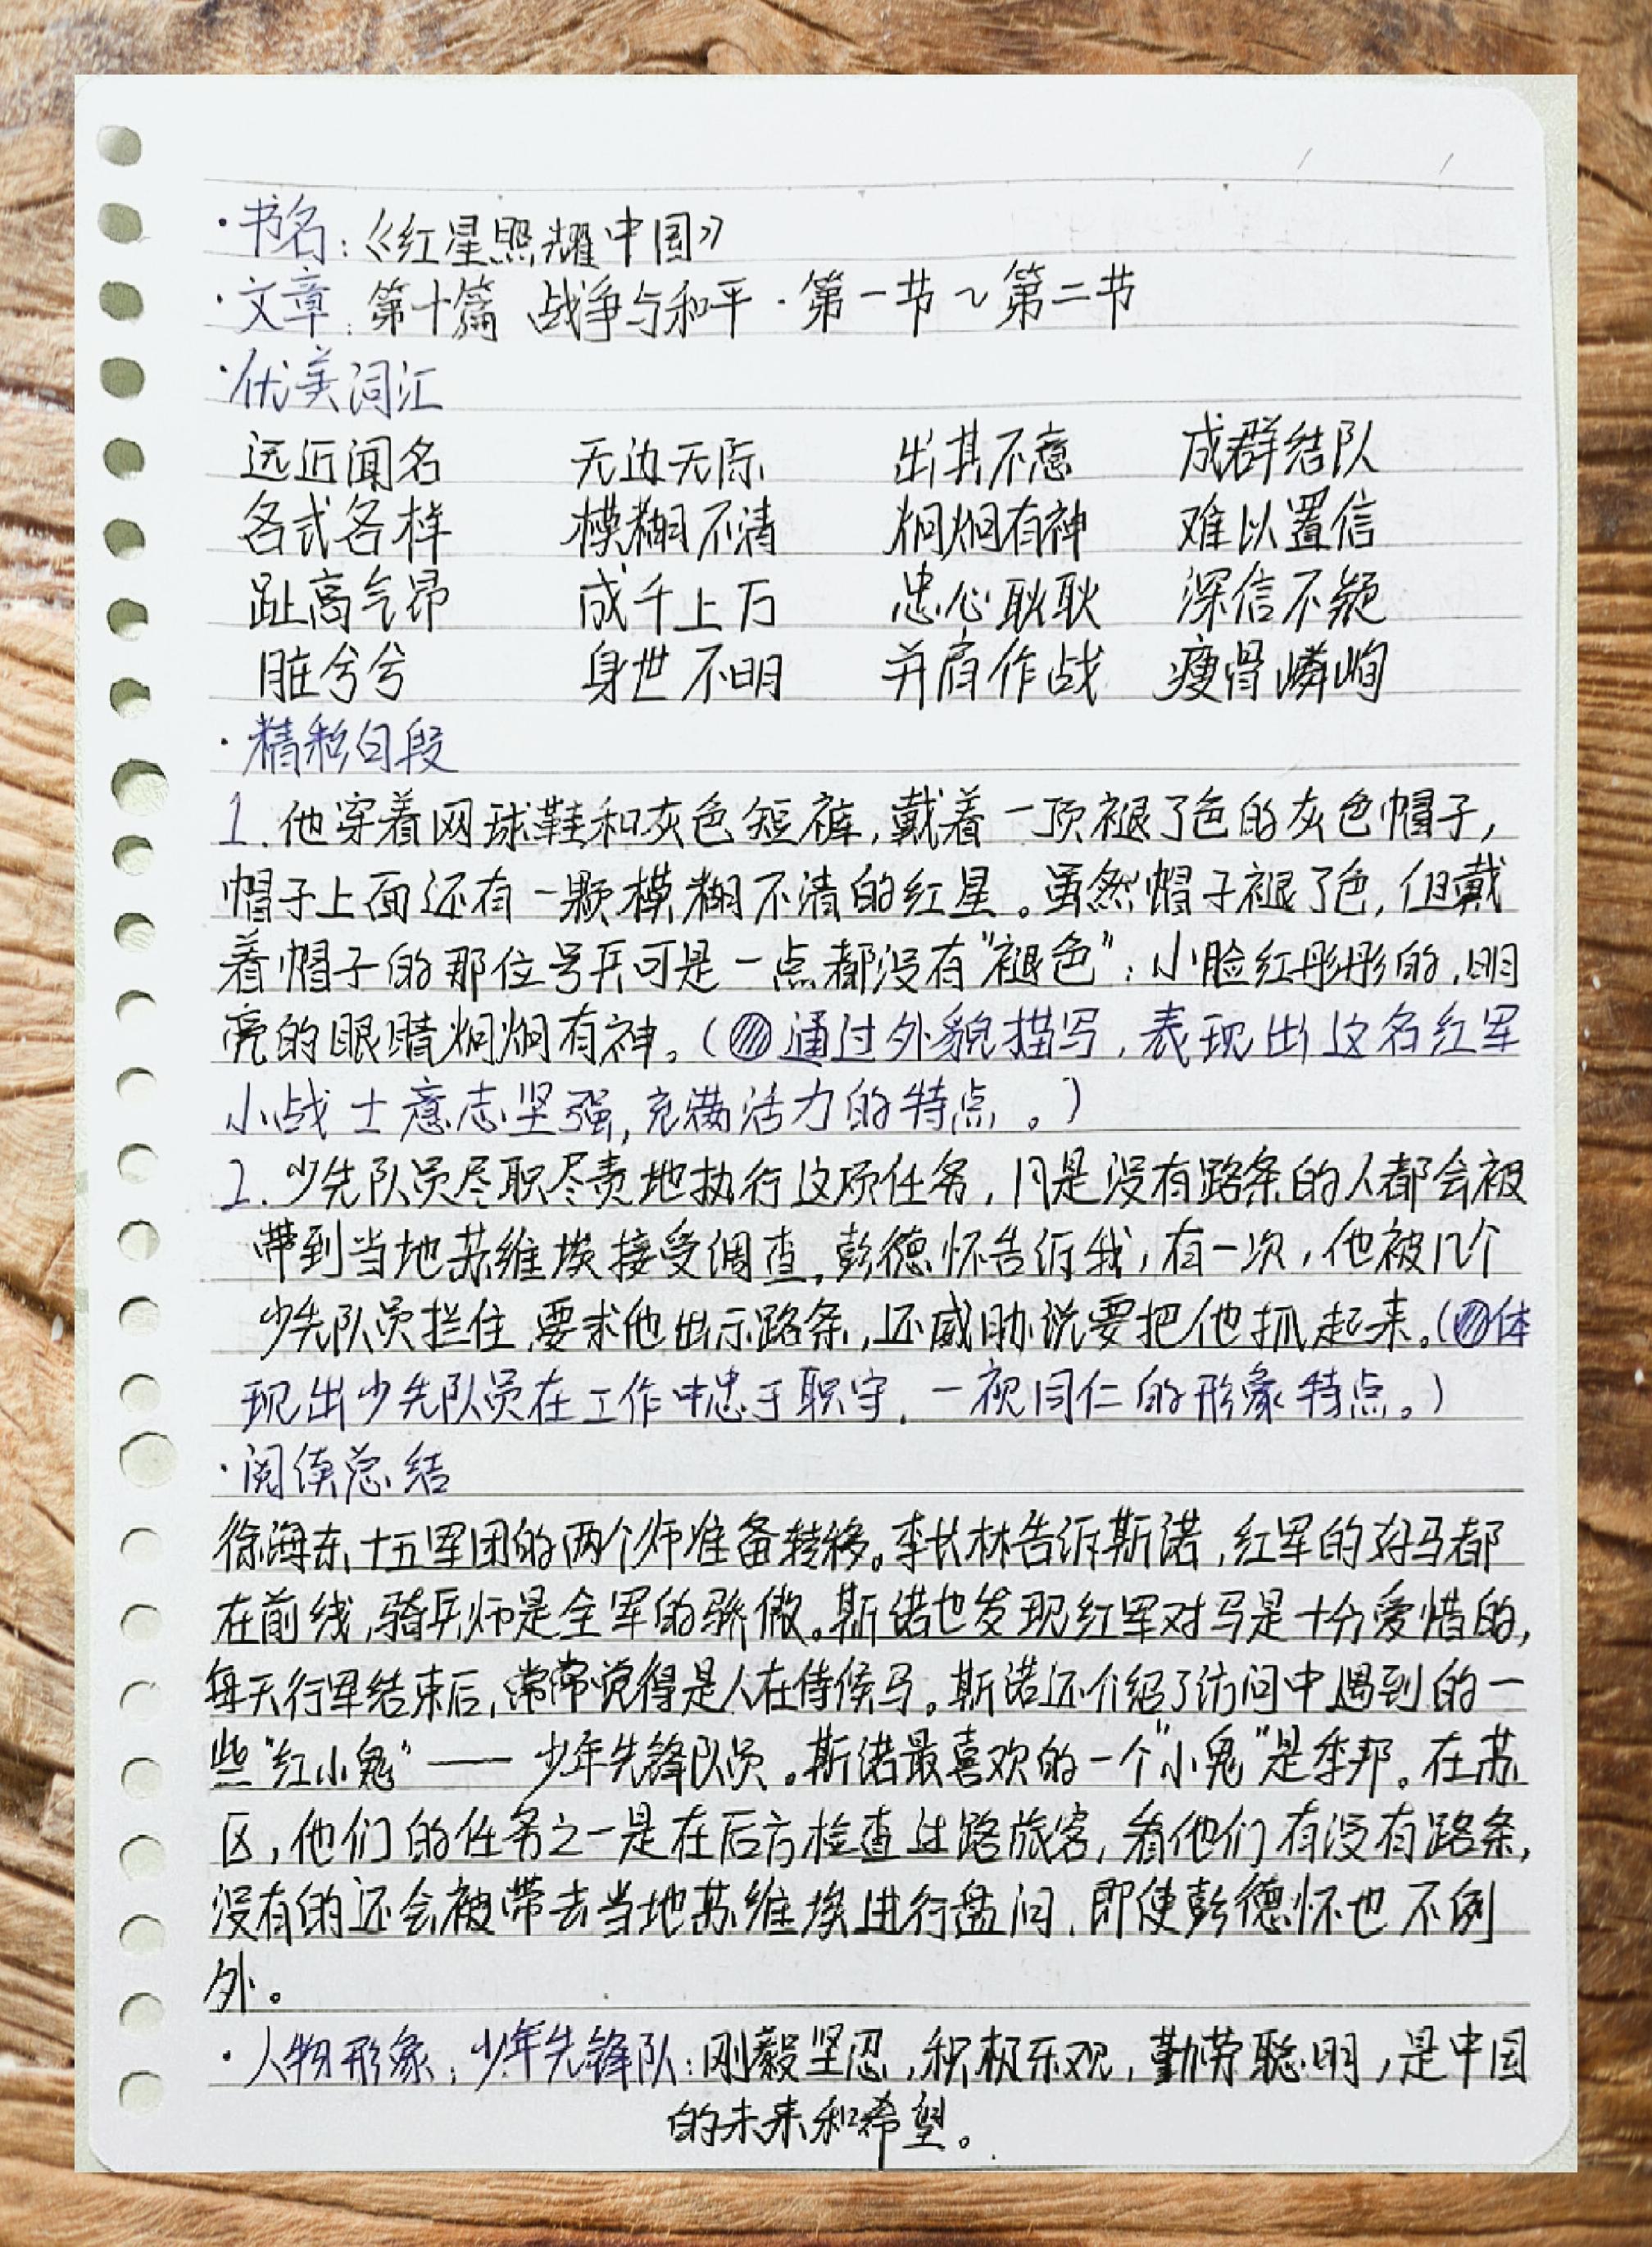 ·书名：《红星照耀中国》
·文章：第十篇 战争与和平·第一节~第二节
·优美词汇
远近闻名 无边无际 出其不意 成群结队
各式各样 模糊不清 炯炯有神 难以置信
趾高气昂 成千上万 忠心耿耿 深信不疑
脏兮兮 身世不明 并肩作战 瘦骨嶙峋
·精彩句段
1.他穿着网球鞋和灰色短裤，戴着一顶褪了色的灰色帽子，
帽子上面还有一颗模糊不清的红星。虽然帽子褪了色，但戴
着帽子的那位号兵可是一点都没有"褪色"：小脸红彤彤的，明
亮的眼睛炯炯有神。（通过外貌描写，表现出这名红军
小战士意志坚强，充满活力的特点。）
2.少先队员尽职尽责地执行这项任务，凡是没有路条的人都会被
带到当地苏维埃接受调查。彭德怀告诉我，有一次，他被几个
少先队员拦住，要求他出示路条，还威胁说要把他抓起来。（体
现出少先队员在工作中忠于职守，一视同仁的形象特点。）
·阅读总结
徐海东、十五军团的两个师准备转移。李长林告诉斯诺，红军的好马都
在前线，骑兵师是全军的骄傲。斯诺也发现红军对马是十分爱惜的，
每天行军结束后，常常觉得是人在侍候马。斯诺还介绍了访问中遇到的一
些"红小鬼"——少年先锋队员。斯诺最喜欢的一个"小鬼"是季邦。在苏
区，他们的任务之一是在后方检查过路旅客，看他们有没有路条，
没有的还会被带去当地苏维埃进行盘问，即使彭德怀也不例
外。
·人物形象：少年先锋队：刚毅坚忍，积极乐观，勤劳聪明，是中国
的未来和希望。